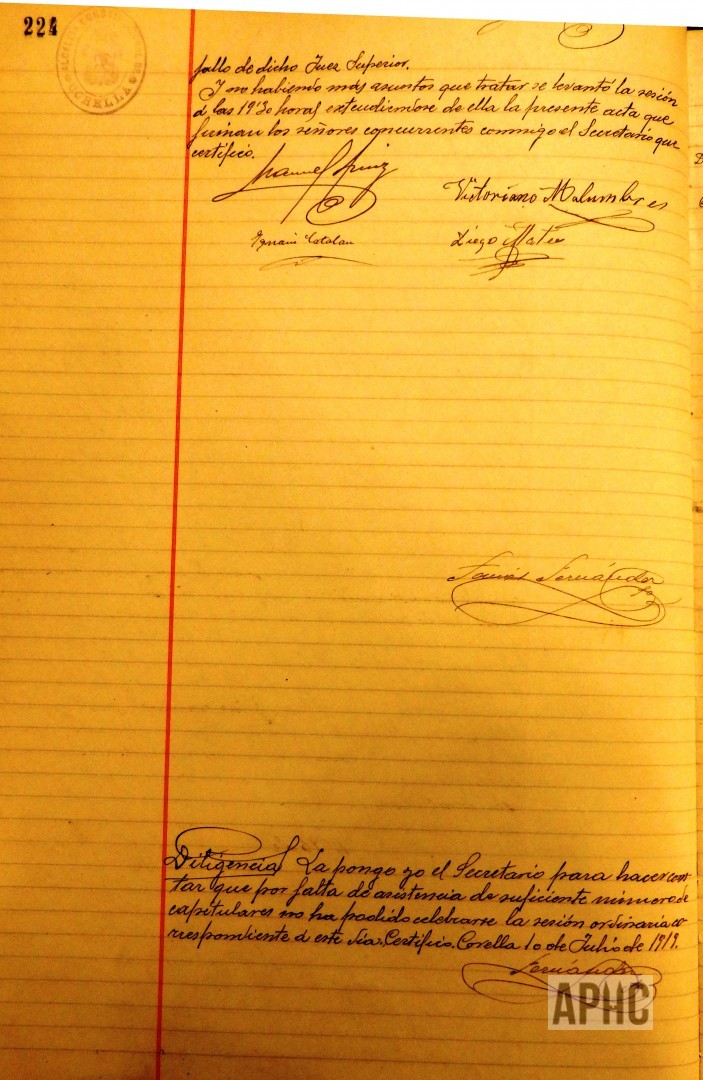 224
CORELLA
fallo de dicho Juez Superior.
Y no habiendo más asuntos que tratar se levantó la sesión
á las 19'30 horas extendiéndose de ella la presente acta que
firman los señores concurrentes conmigo el Secretario que
certifico.
Manuel Ruiz
Victoriano Malumbres
Ignacio Catalan
Diego Mateo
Fernández
Diligencia La pongo yo el Secretario para hacer cons
tar que por falta de asistencia de suficiente número de
capitulares no ha podido celebrarse la sesión ordinaria co
rrespondiente á este día. Certifico. Corella 10 de Julio de 1919.
Fernández
APHC